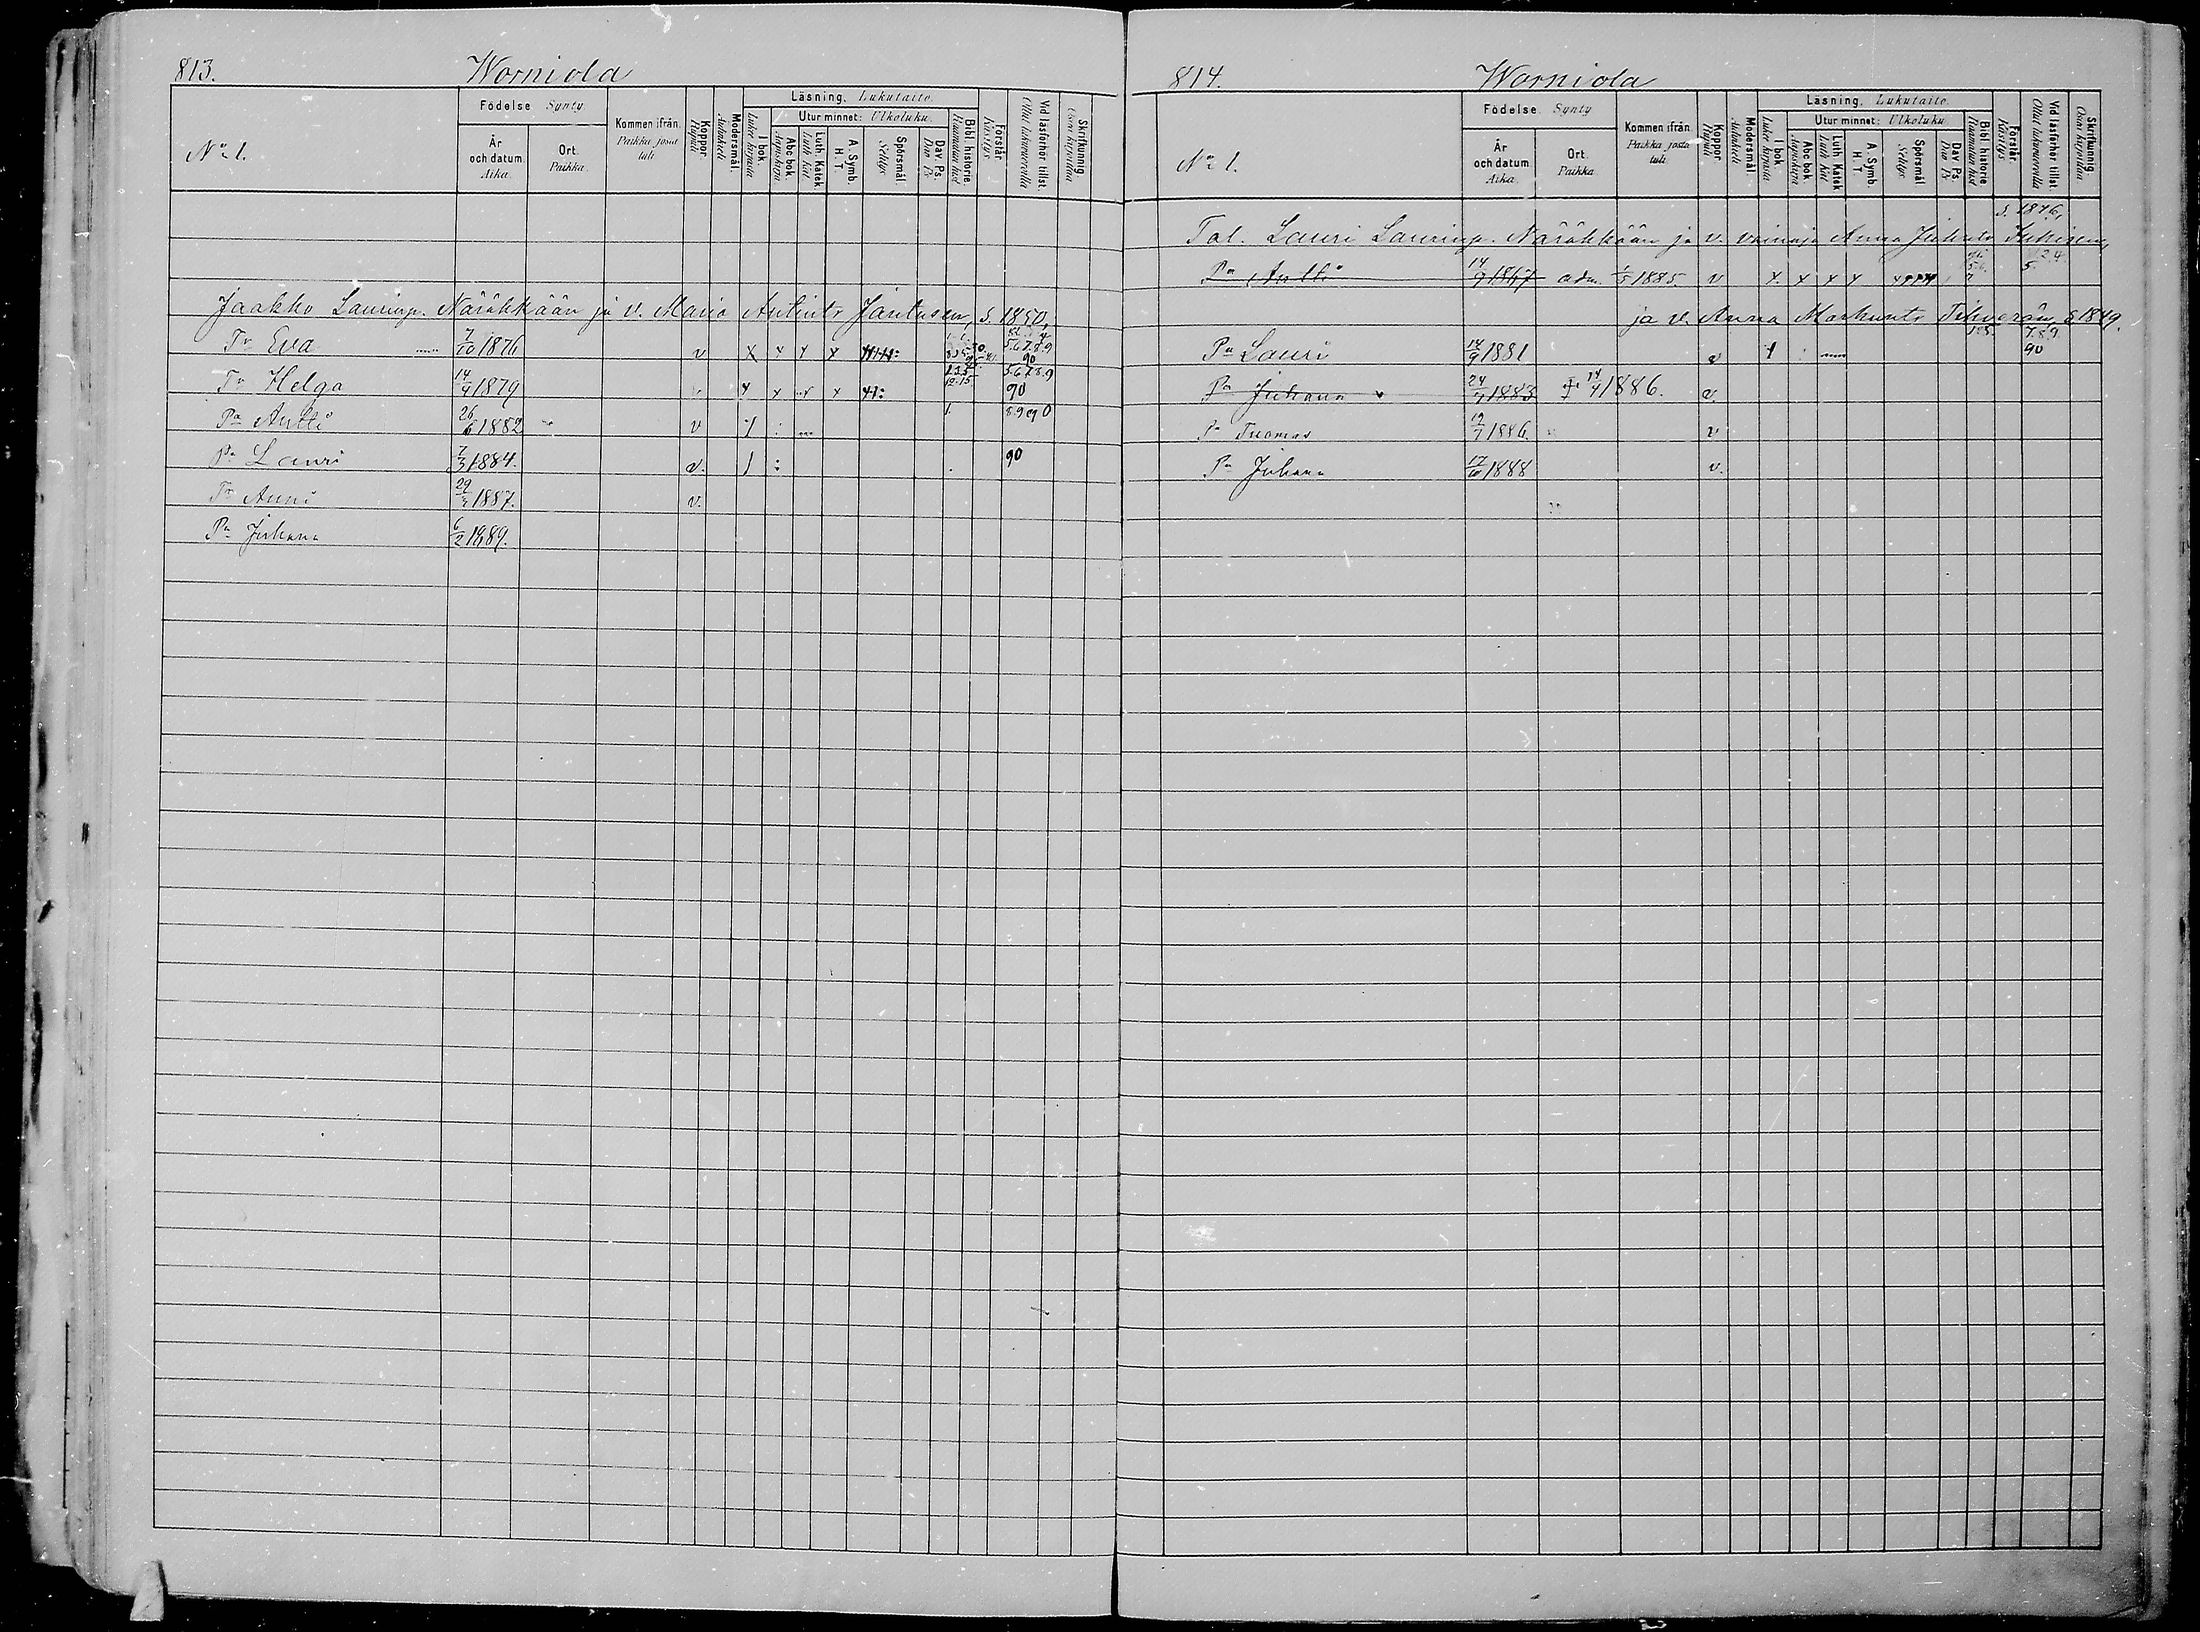 813. Worniola
No 1.
Födelse Synty.
År och datum Aika.
Ort. Paikka.
Kommen ifrån. Paikka josta tuli
Koppor. Rupuli
Modersmål. Äidinkieli
Läsning. Lukutaito.
I bok. Lukee kirjasta
Utur minnet: Ulkoluku.
Abc bok. Aapiskirja
Luth. Katek. Luth Kat
A. Symb. H. T.
Spörsmål. Selitys
Dav. Ps. Dav Ps
Bibl. historie. Raamatun hist
Förstår. Käsitys
Vid läsförhör tillst. Ollut lukuvuorolla
Skrifkunnig. Osaa kirjoittaa
Jaakko Laurinp. Närähkään ja v. Maria Antint. Jantusen, s. 1850,
Tr Eva 7/10 1876 v x x x x 5.6.7.8.9 90
Tr Helga 14/4 1879 x x x 12.15. 5.6.7.8.9 90
Pa Antti 26/6 1882 v 1. 8.9 90
Pa Lauri 7/3 1884. v. 90
Tr Anni 29/3 1887. v.
Pa Juhana 6/2 1889.
814. Worniola
No 1.
Födelse Synty
År och datum Aika.
Ort. Paikka.
Kommen ifrån. Paikka josta tuli.
Koppor Rupuli
Modersmål Äidinkieli
Läsning. Lukutaito.
I bok. Lukee kirjasta
Utur minnet: Ulkoluku.
Abc bok. Aapiskirja
Luth. Katek Luth Kat
A. Symb. H. T.
Spörsmål Selitys
Dav Ps. Dav Ps
Bibl. historie Raamatun hist
Förstår. Käsitys
Vid läsförhör tillst. Ollut lukuvuorolla
Skrifkunnig. Osaa kirjoittaa
s. 1876,
Tal. Lauri Laurinp. Närähkään ja v. vainaja Anna Juhant.
Pa Antti 14/9 1867 adm. 1885. v x x x x
ja v. Anna Markunt. s. 1849.
Pa Lauri 14/9 1881 v 7.8.9. 90
Pa Juhana 24/7 1883 † 14/4 1886. v.
Pa Tuomas 19/7 1886. v
Pa Juhana 17/10 1888 v.